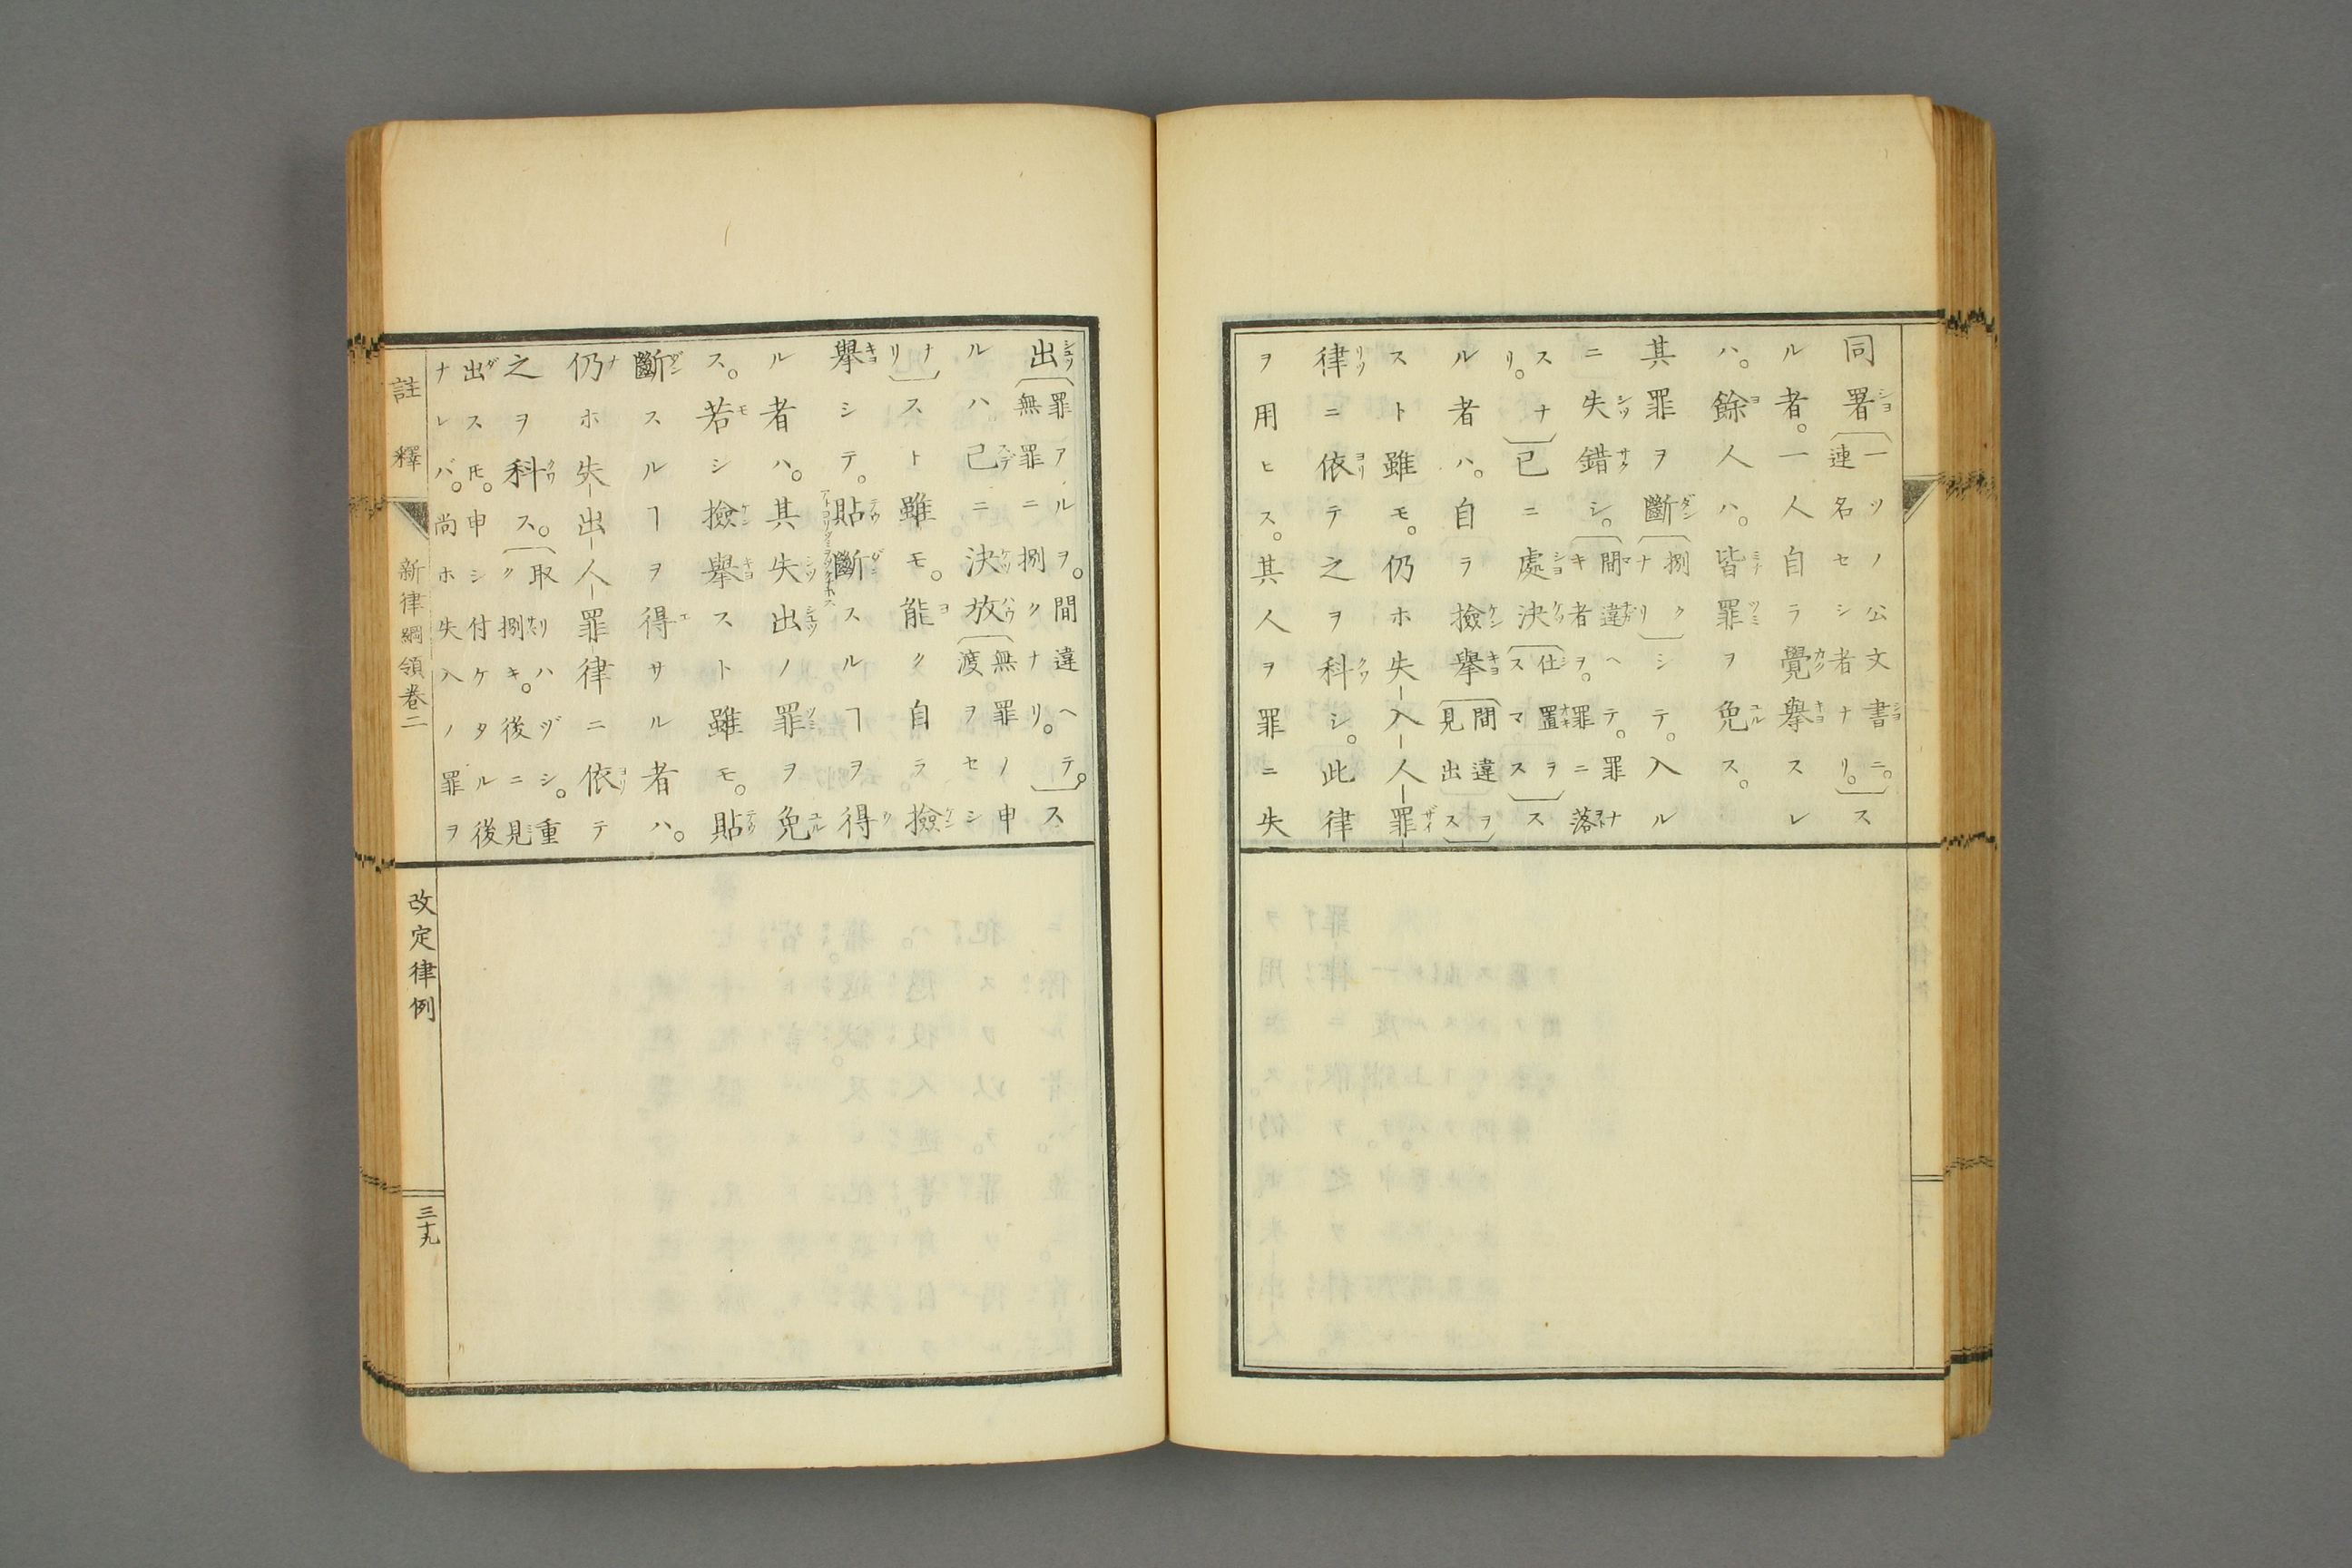 同署一ツノ公文書ニ。連名セシ者ナリ。ス
ル者。一人自ラ覺擧スレ
ハ。餘人ハ。皆罪ヲ免ス。
其罪ヲ斷捌クナリシテ。入ル
ニ失錯シ。間違ヘテ。罪ナキ者ヲ。罪ニ落
スナリ。已ニ處決仕置ヲスマスス
ル者ハ。自ラ撿擧間違ヲ見出ス
スト雖モ。仍ホ失入人罪
律ニ依テ之ヲ科シ。此律
ヲ用ヒス。其人ヲ罪ニ失
出罪アルヲ。間違ヘテ。無罪ニ捌クナリ。ス
ルハ已ニ決放無罪ノ申渡ヲセシ
ナリスト雖モ。能ク自ラ撿
擧シテ。貼斷スルヿヲ得
ル者ハ。其失出ノ罪ヲ免
ス。若シ撿擧スト雖モ。貼
斷スルヿヲ得サル者ハ。
仍ホ失出人罪律ニ依テ
之ヲ科ス。取捌ハヅシ。重ク捌キ。後ニ見
出スモ。申シ付ケタル後ナレバ。尚ホ失入ノ罪ヲ
註釋 新律綱領卷二 改定律例 三十九